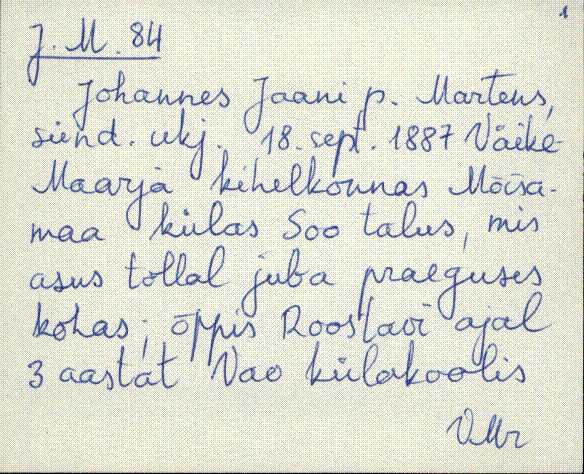 1
J. M. 84
Johannes Jaani p. Martens,
sünd. ukj. 18. sept. 1887 Väike-
Maarja kihelkonnas Mõisa-
maa külas Soo talus, mis
asus tollal juba praeguses
kohas; õppis Roostavi ajal
3 aastat Vao külakoolis
VMr